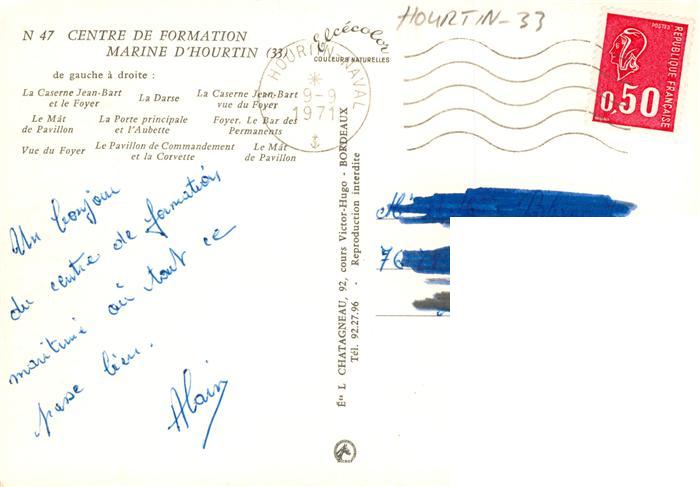 N 47 CENTRE DE FORMATION
MARINE D'HOURTIN (33)
Elcécolor
COULEURS NATURELLES
de gauche à droite :
La Caserne Jean-Bart et le Foyer
La Darse
La Caserne Jean-Bart vue du Foyer
Le Mât de Pavillon
La Porte principale et l'Aubette
Foyer. Le Bar des Permanents
Vue du Foyer
Le Pavillon de Commandement et la Corvette
Le Mât de Pavillon
HOURTIN-NAVAL
9-9
1971
HOURTIN-33
POSTES
REPUBLIQUE FRANÇAISE
0,50
Un bonjour
du centre de formations
maritime où tout ce
passe bien.
Alain
Éts L CHATAGNEAU, 92, cours Victor-Hugo - BORDEAUX
Tél. 92.27.96 - Reproduction interdite
76